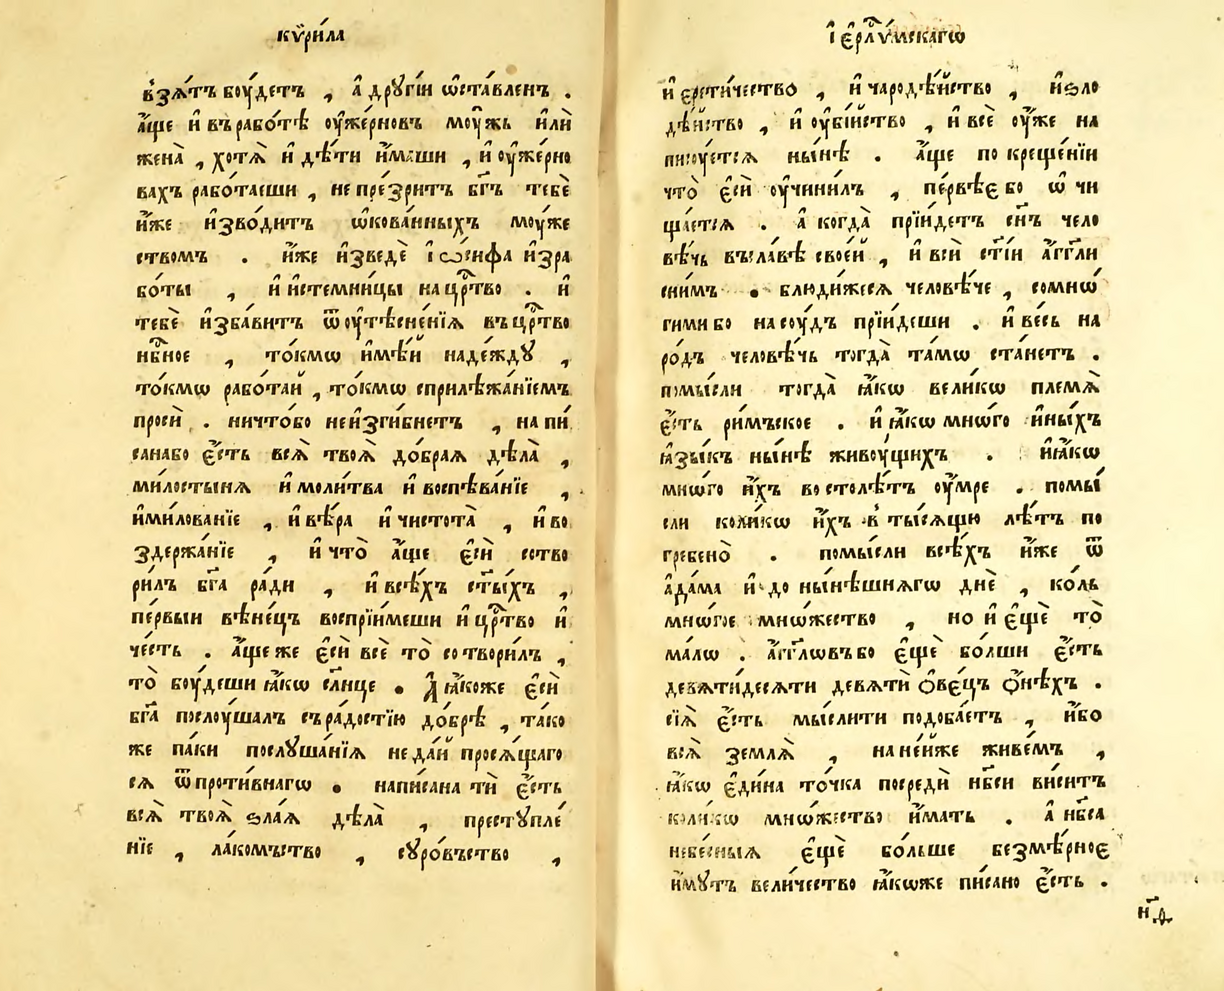 кѷри́ла
в̾зѧ́тъ боу́детъ , а҆ дрꙋгі́и ѡ҆ста́вленъ .
а҆́ще и҆ въ рабо́тѣ оу҆же́рновъ моу҆́жь и҆лѝ
жена̀ , хотѧ̀ и҆ дѣ́ти и҆́маши , и҆ оу҆же́рно
вахъ рабо́таеши , не пре́зритъ бг҃ъ тебѐ
и҆́же и҆зво́дитъ ѡ҆кова́нныхъ моу́же
ствомъ . и҆́же и҆зведѐ і҆ ѡ҆́сифа и҆зра
бо́ты , и҆ и҆стемни́цы на црⷭ҇тво . и҆
тебѐ и҆зба́витъ ѿ оу҆тѣсне́нїѧ въ црⷭ҇тво
нбⷭ҇ное , то́кмѡ и҆мѣ́й наде́ждꙋ ,
то́кмѡ рабо́тай , то́кмѡ сприлѣжа́нїемъ
просѝ . ничто́бо неи҆зги́бнетъ , на пи́
санабо є҆́сть всѧ̀ твоѧ̀ до́браѧ дѣ́ла ,
ми́лостынѧ и҆ моли́тва и҆ воспѣва́нїе ,
и҆милованїе , и҆ вѣ́ра и҆ чистота̀ , и҆ во
здержа́нїе , и҆ что̀ а҆́ще є҆сѝ сотво
ри́лъ бг҃а ра́ди , и҆ всѣ́хъ ст҃ы́хъ ,
пе́рвыи вѣне́цъ воспрїи́меши и҆ црⷭ҇тво и҆
че́сть . а҆́ще же є҆сѝ всѐ то̀ сотвори́лъ ,
то̀ боу́деши ꙗ҆́кѡ сл҃нце . А҆ ꙗ҆́коже є҆сѝ
бг҃а послоу́шалъ съ ра́достїю до́брѣ , та́ко
же па́ки послꙋша́нїѧ не да́й просѧ́щаго
сѧ ѿ проти́внагѡ . напи́сана тѝ є҆́сть
всѧ̀ твоѧ̀ ѕла́ѧ дѣ́ла , престꙋпле́
нїе , ла́комъство , сꙋро́въство ,
і҆ є҆рлⷭ҇ѵ́мскагѡ
и҆ єрети́чество , и҆ чародѣ́йство , и҆ѕло
дѣ́йство , и҆ оу҆бі́йство , и҆ всѐ оу҆́же на
писꙋ́етсѧ ны́нѣ . а҆́ще по креще́нїи
что̀ є҆сѝ оу҆чини́лъ , пе́рвѣє бо ѡ҆ чи
ща́етсѧ . а҆ когда̀ прїи́детъ сн҃ъ чело
вѣ́чь въ сла́вѣ свое́й , и҆ всѝ ст҃і́и а҆́гг҃ли
сни́мъ . блюди́жесѧ человѣ́че , сомнѡ́
гими бо на соу́дъ прїи́деши . и҆ весь на
ро́дъ человѣ́чь тогда̀ та́мѡ ста́нетъ .
помы́сли тогда̀ ꙗ҆́кѡ вели́кѡ племѧ̀
є҆́сть ри́мъское . и҆ ꙗ҆́кѡ мнѡ́го и҆ны́хъ
ꙗ҆зы́къ ны́нѣ живоу́щихъ . и҆ꙗ҆́кѡ
мнѡ́го и҆́хъ во столѣ́тъ оу҆́мре . помы́
сли коли́кѡ и҆́хъ в̾ ты́сѧщю лѣ́тъ по
гребено̀ . помы́сли всѣ́хъ и҆́же ѿ
а҆да́ма и҆ до ны́нѣшнѧгѡ днѐ , ко́ль
мнѡ́гое мнѡ́жество , но и҆ є҆щѐ то̀
ма́лѡ . а҆́гг҃лѡвъ бо є҆щѐ бо́лши є҆́сть
девѧти́десѧти девѧтѝ ѻ҆ве́цъ ѻ҆нѣ́хъ .
сїѧ̀ є҆́сть мы́слити подоба́етъ , и҆́бо
всѧ̀ землѧ̀ , на не́йже живе́мъ ,
ꙗ҆́кѡ є҆ди́на то́чка посредѝ нб҃си виси́тъ
коли́кѡ мнѡ́жество и҆́мать . а҆ нб҃са
небе́сныѧ є҆щѐ бо́льше безмѣ́рноє
и҆́мꙋтъ вели́чество ꙗ҆́кѡже пи́сано є҆́сть .
н҃д